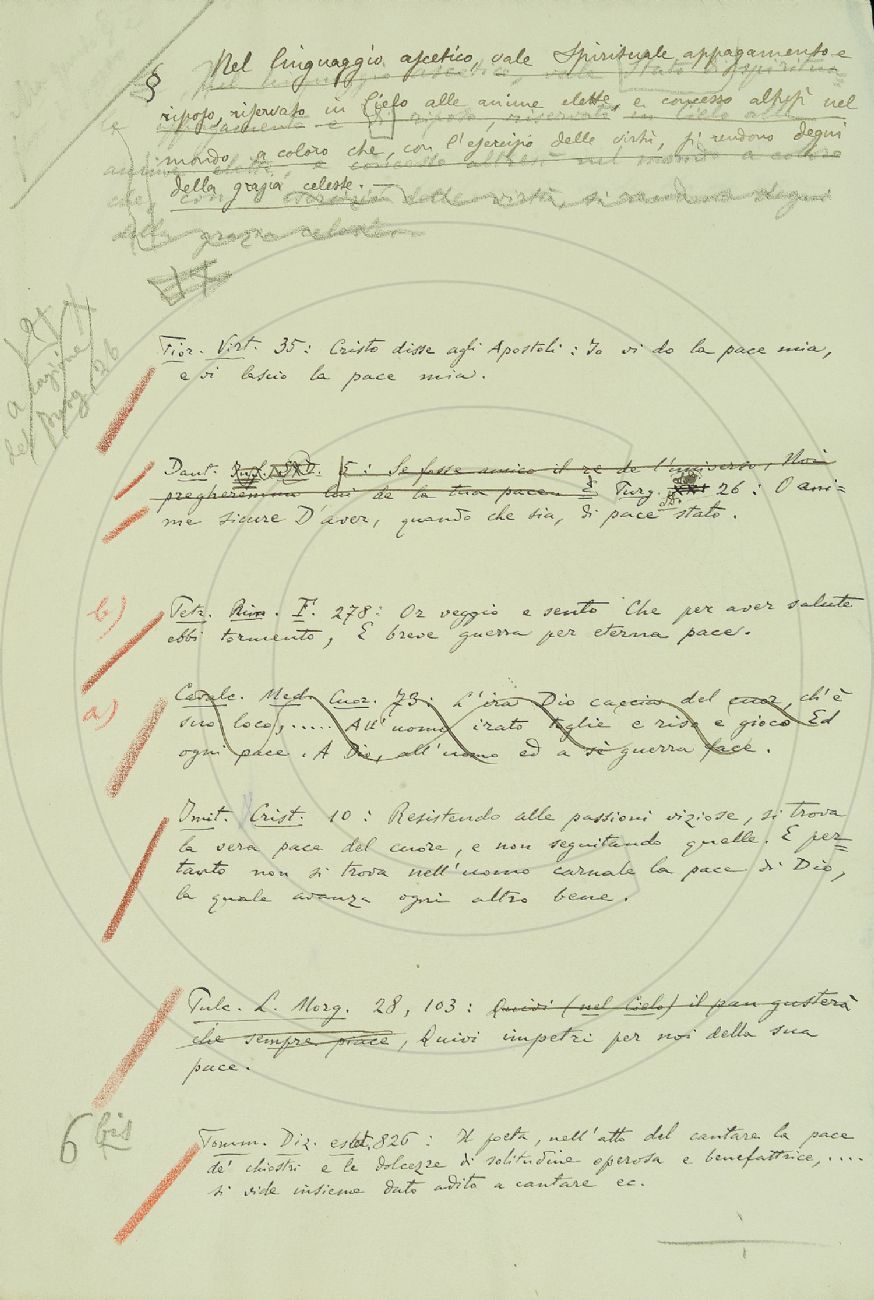 § Nel linguaggio ascetico, vale Spirituale appagamento e
riposo, riservato in Cielo alle anime elette, e concesso altresì nel
mondo a coloro che, con l'esercizio delle virtù, si rendono degni
della grazia celeste. —
che, con esercizio delle virtù, si rendono degni
della grazia celeste.
Fior. Virt. 35: Cristo disse agli Apostoli: Io vi do la pace mia,
e vi lascio la pace mia.
a
cazione
del Purg. 26
Dant. Inf. 5: Se fosse amico il re de l'universo, Noi
pregheremmo lui de la tua pace. Purg. 26: O ani=
me sicure D'aver, quando che sia, di pace stato.
b) Petr. Rim. F. 278: Or veggio e sento Che per aver salute
ebbi tormento, E breve guerra per eterna pace.
a) Cavalc. Med. Cuor. 73: L'ira Dio caccia del cuor, ch'è
suo loco, ..... All'uomo irato toglie e riso e gioco Ed
ogni pace. A Dio, all'uomo ed a sè guerra face.
Imit. Crist. 10: Resistendo alle passioni viziose, si trova
la vera pace del cuore, e non seguitando quelle. E per=
tanto non si trova nell'uomo carnale la pace di Dio,
la quale avanza ogni altro bene.
Pulc. L. Morg. 28, 103: Quivi (nel Cielo) il pan gusterà
che sempre piace, Quivi impetri per noi della sua
pace.
6 bis
Tomm. Diz. estet. 826: Il poeta, nell'atto del cantare la pace
de' chiostri e le dolcezze di solitudine operosa e benefattrice, ....
si vide insieme dato adito a cantare ec.